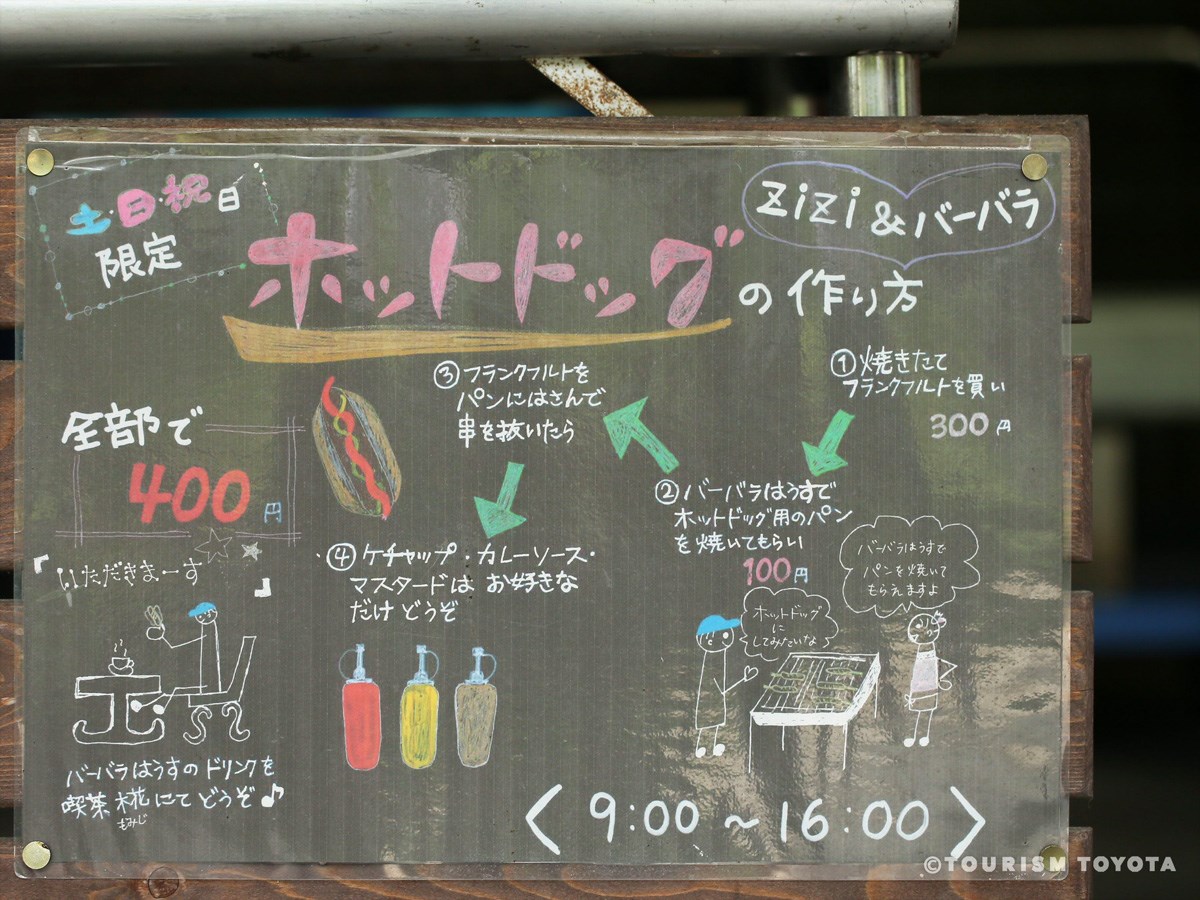 土・日・祝日
限定
ZiZi & バーバラ
ホットドッグの作り方
①焼きたて
フランクフルトを買い
300円
②バーバラはうすで
ホットドッグ用のパン
を焼いてもらい
100円
③フランクフルトを
パンにはさんで
串を抜いたら
④ケチャップ・カレーソース・
マスタードは お好きな
だけ どうぞ
全部で
400円
「いただきまーす」
バーバラはうすのドリンクを
喫茶 椛にて どうぞ♪
もみじ
ホットドッグ
に
してみたいな♪
バーバラはうすで
パンを焼いて
もらえますよ
〈 9:00 ~ 16:00 〉
©TOURISM TOYOTA